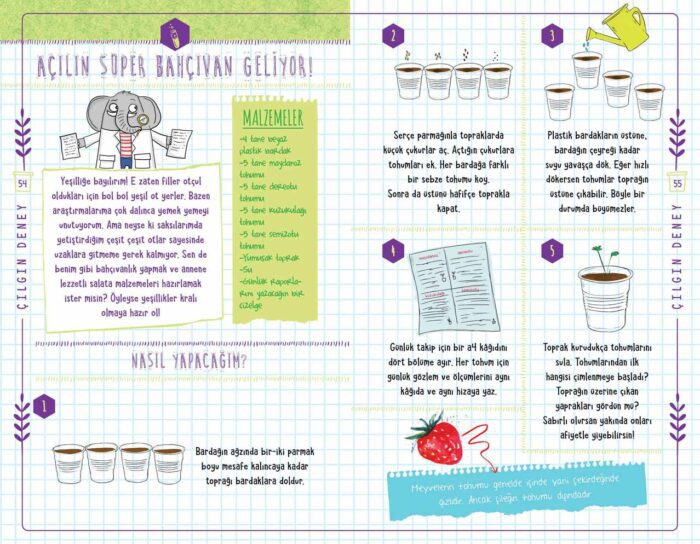 AÇILIN SÜPER BAHÇIVAN GELİYOR!
MALZEMELER
-4 tane beyaz
plastik bardak
-5 tane maydanoz
tohumu
-5 tane dereotu
tohumu
-5 tane kuzukulağı
tohumu
-5 tane semizotu
tohumu
-Yumuşak toprak
-Su
-Günlük raporla-
rını yazacağın bir
çizelge
Yeşilliğe bayılırım! E zaten filler otçul
oldukları için bol bol yeşil ot yerler. Bazen
araştırmalarıma çok dalınca yemek yemeyi
unutuyorum. Ama neyse ki saksılarımda
yetiştirdiğim çeşit çeşit otlar sayesinde
uzaklara gitmeme gerek kalmıyor. Sen de
benim gibi bahçıvanlık yapmak ve annene
lezzetli salata malzemeleri hazırlamak
ister misin? Öyleyse yeşillikler kralı
olmaya hazır ol!
54
ÇILGIN DENEY
NASIL YAPACAĞIM?
1
Bardağın ağzında bir-iki parmak
boyu mesafe kalıncaya kadar
toprağı bardaklara doldur.
2
Serçe parmağınla topraklarda
küçük çukurlar aç. Açtığın çukurlara
tohumları ek. Her bardağa farklı
bir sebze tohumu koy.
Sonra da üstünü hafifçe toprakla
kapat.
3
Plastik bardakların üstüne,
bardağın çeyreği kadar
suyu yavaşça dök. Eğer hızlı
dökersen tohumlar toprağın
üstüne çıkabilir. Böyle bir
durumda büyümezler.
4
Günlük takip için bir a4 kâğıdını
dört bölüme ayır. Her tohum için
günlük gözlem ve ölçümlerini aynı
kâğıda ve aynı hizaya yaz.
5
Toprak kurudukça tohumlarını
sula. Tohumlarından ilk
hangisi çimlenmeye başladı?
Toprağın üzerine çıkan
yaprakları gördün mü?
Sabırlı olursan yakında onları
afiyetle yiyebilirsin!
Meyvelerin tohumu genelde içinde yani çekirdeğinde
gizlidir. Ancak çileğin tohumu dışındadır.
55
ÇILGIN DENEY